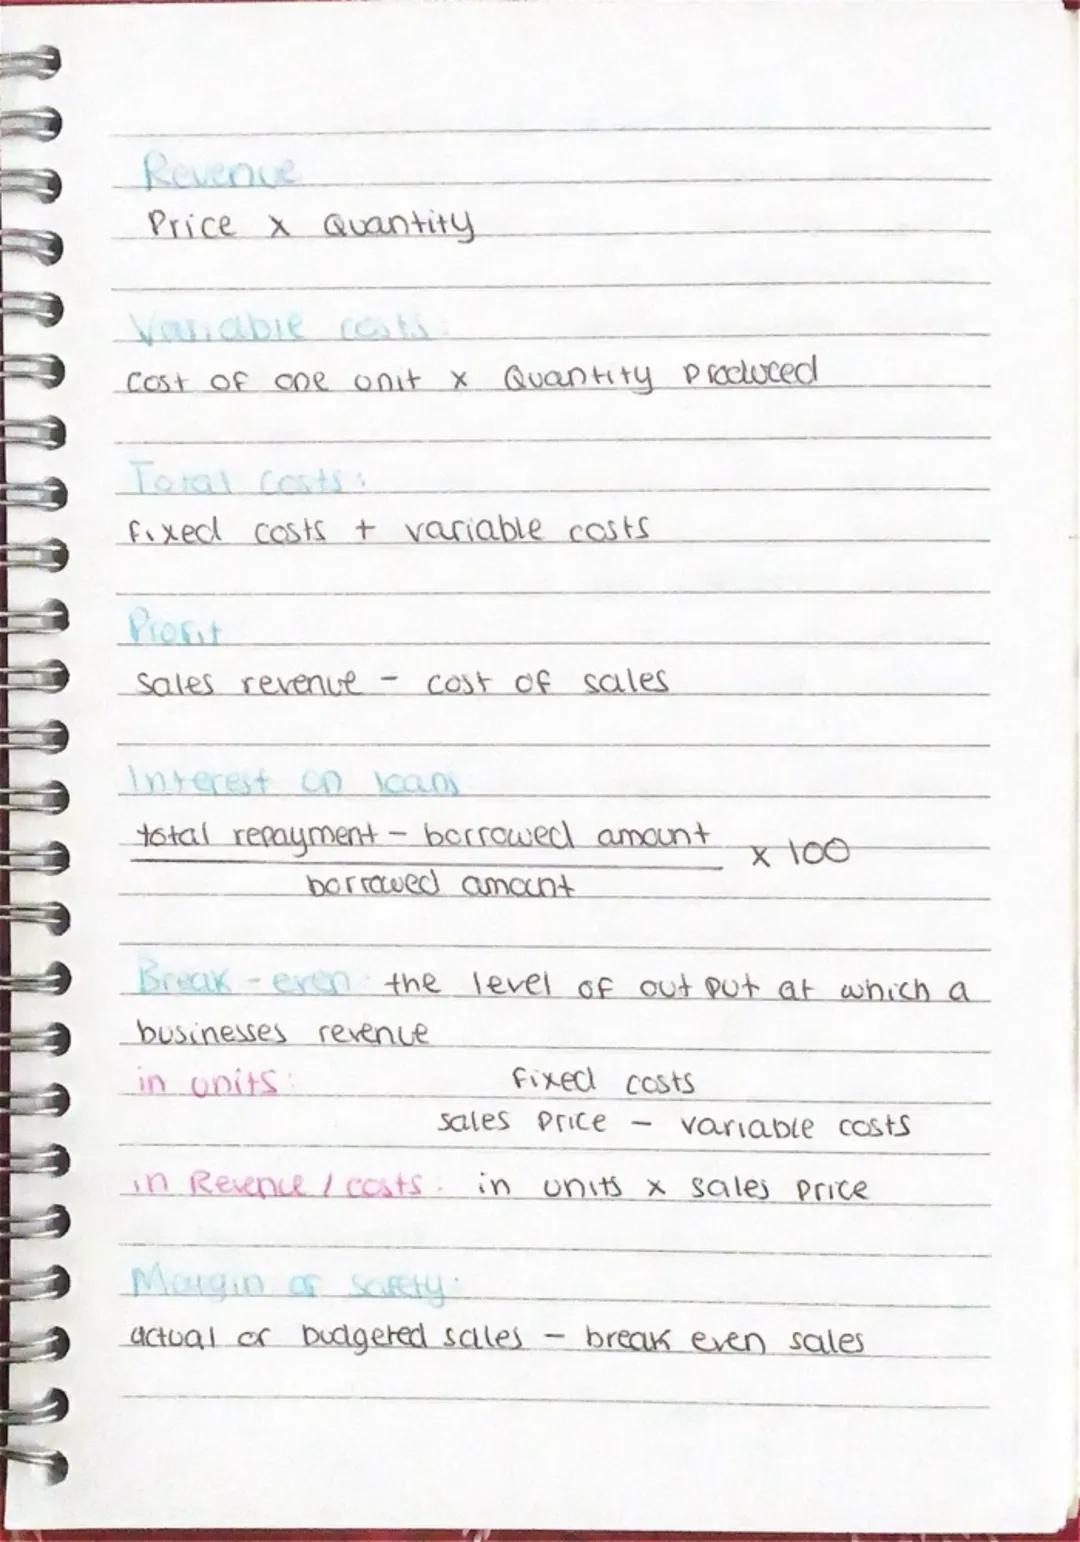 Revenue
Price x Quantity
Variable costs:
cost of one unit x Quantity Produced
Total costs:
fixed costs + variable costs
Profit
sales revenue - cost of sales
Interest on loans
total repayment - borrowed amount
x 100
borrowed amount
Break-even: the level of out put at which a
businesses revenue
in units: fixed costs
sales price - variable costs
in Revenue / costs: in units x sales price
Margin of safety:
actual or budgeted sales - break even sales